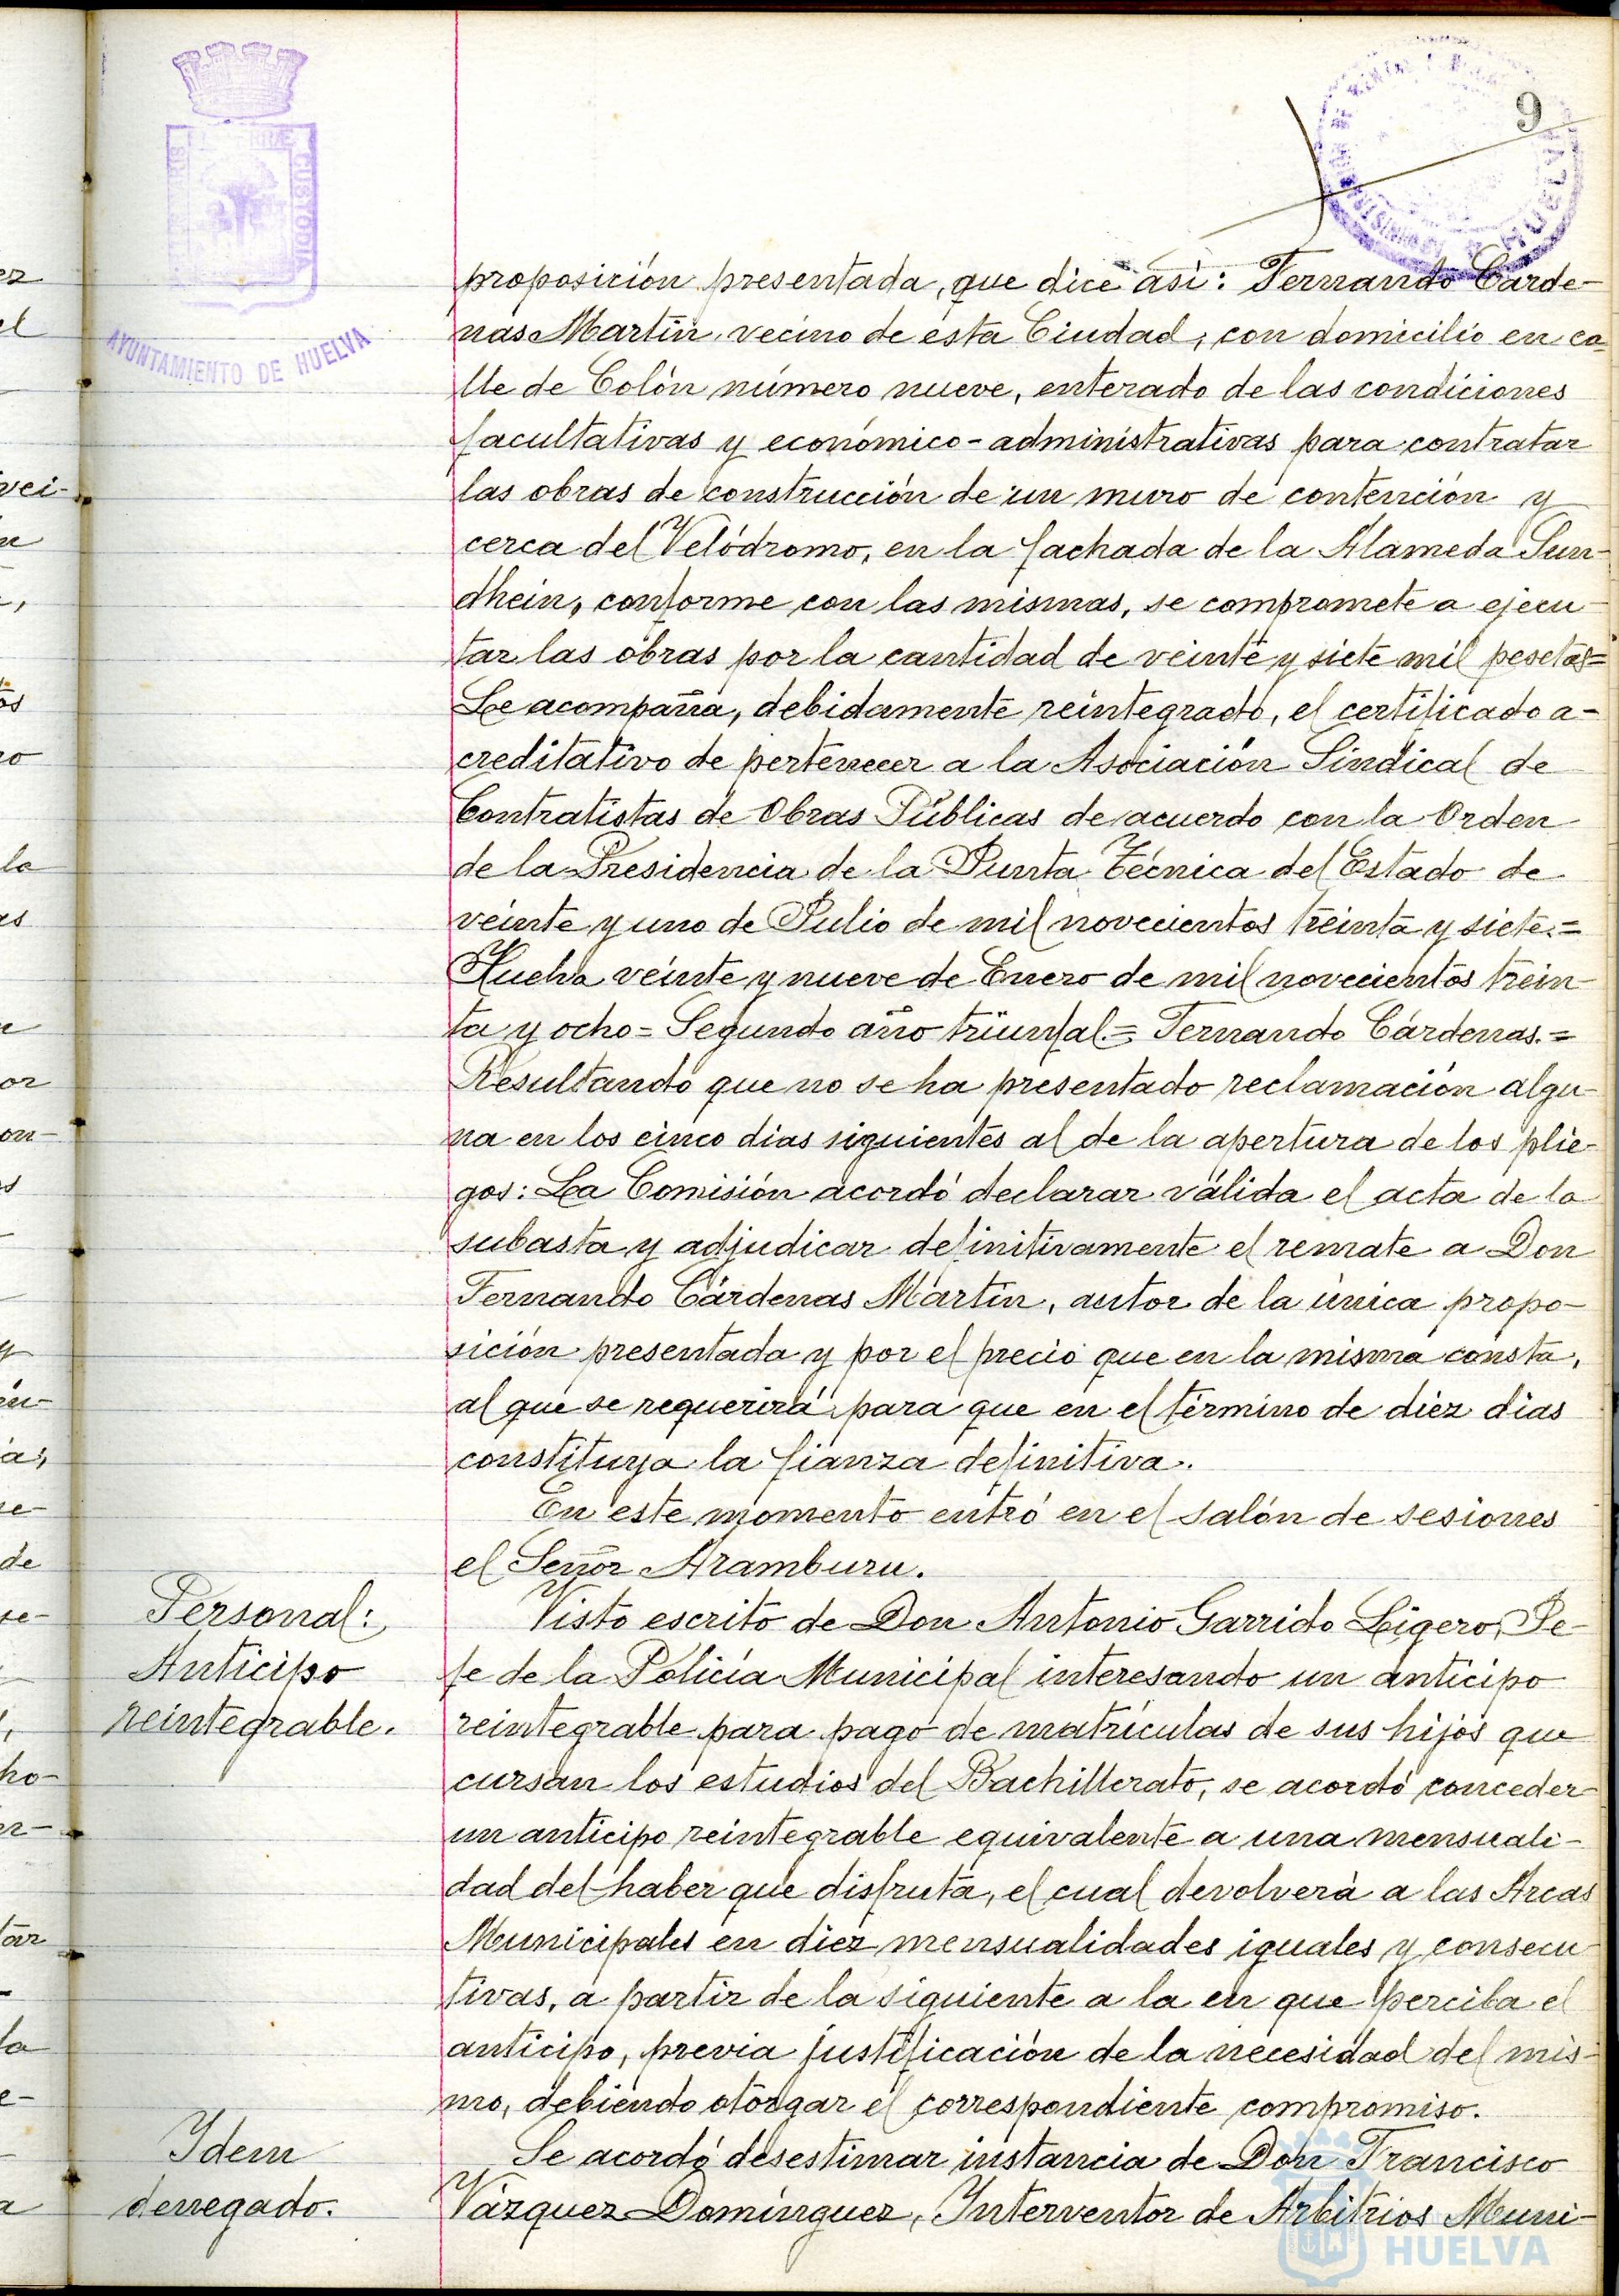 9
AYUNTAMIENTO DE HUELVA
CUSTODIA
HUELVA
proposición presentada, que dice así: Fernando Cárde-
nas Martín, vecino de esta Ciudad, con domicilio en ca-
lle de Colón número nueve, enterado de las condiciones
facultativas y económico-administrativas para contratar
las obras de construcción de un muro de contención y
cerca del Velódromo, en la fachada de la Alameda Sun-
dhein, conforme con las mismas, se compromete a ejecu-
tar las obras por la cantidad de veinte y siete mil pesetas=
Se acompaña, debidamente reintegrado, el certificado a-
creditativo de pertenecer a la Asociación Sindical de
Contratistas de Obras Públicas de acuerdo con la Orden
de la Presidencia de la Junta Técnica del Estado de
veinte y uno de Julio de mil novecientos treinta y siete.=
Huelva veinte y nueve de Enero de mil novecientos trein-
ta y ocho= Segundo año triunfal.= Fernando Cárdenas.=
Resultando que no se ha presentado reclamación algu-
na en los cinco dias siguientes al de la apertura de los plie-
gos: La Comisión acordó declarar válida el acta de la
subasta y adjudicar definitivamente el remate a Don
Fernando Cárdenas Martín, autor de la única propo-
sición presentada y por el precio que en la misma consta,
al que se requerirá para que en el término de diez dias
constituya la fianza definitiva.
En este momento entró en el salón de sesiones
el Señor Aramburu.
Personal:
Anticipo
reintegrable.
Visto escrito de Don Antonio Garrido Ligero, Je-
fe de la Policía Municipal interesando un anticipo
reintegrable para pago de matrículas de sus hijos que
cursan los estudios del Bachillerato, se acordó conceder
un anticipo reintegrable equivalente a una mensuali-
dad del haber que disfruta, el cual devolverá a las Arcas
Municipales en diez mensualidades iguales y consecu-
tivas, a partir de la siguiente a la en que perciba el
anticipo, previa justificación de la necesidad del mis-
mo, debiendo otorgar el correspondiente compromiso.
Idem
denegado.
Se acordó desestimar instancia de Don Francisco
Vázquez Domínguez, Interventor de Arbitrios Muni-
HUELVA